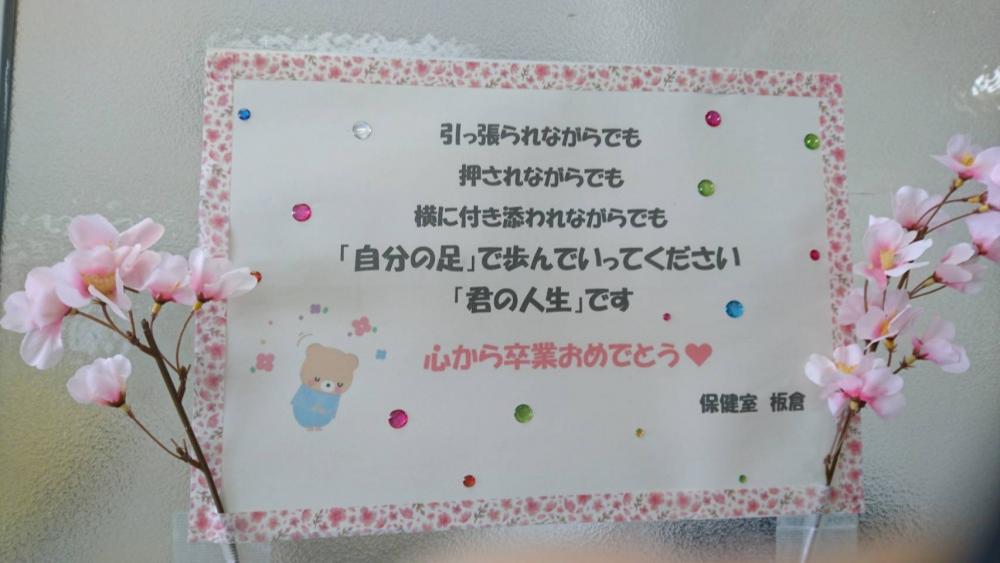 引っ張られながらでも
押されながらでも
横に付き添われながらでも
「自分の足」で歩んでいってください
「君の人生」です
心から卒業おめでとう♥
保健室 板倉